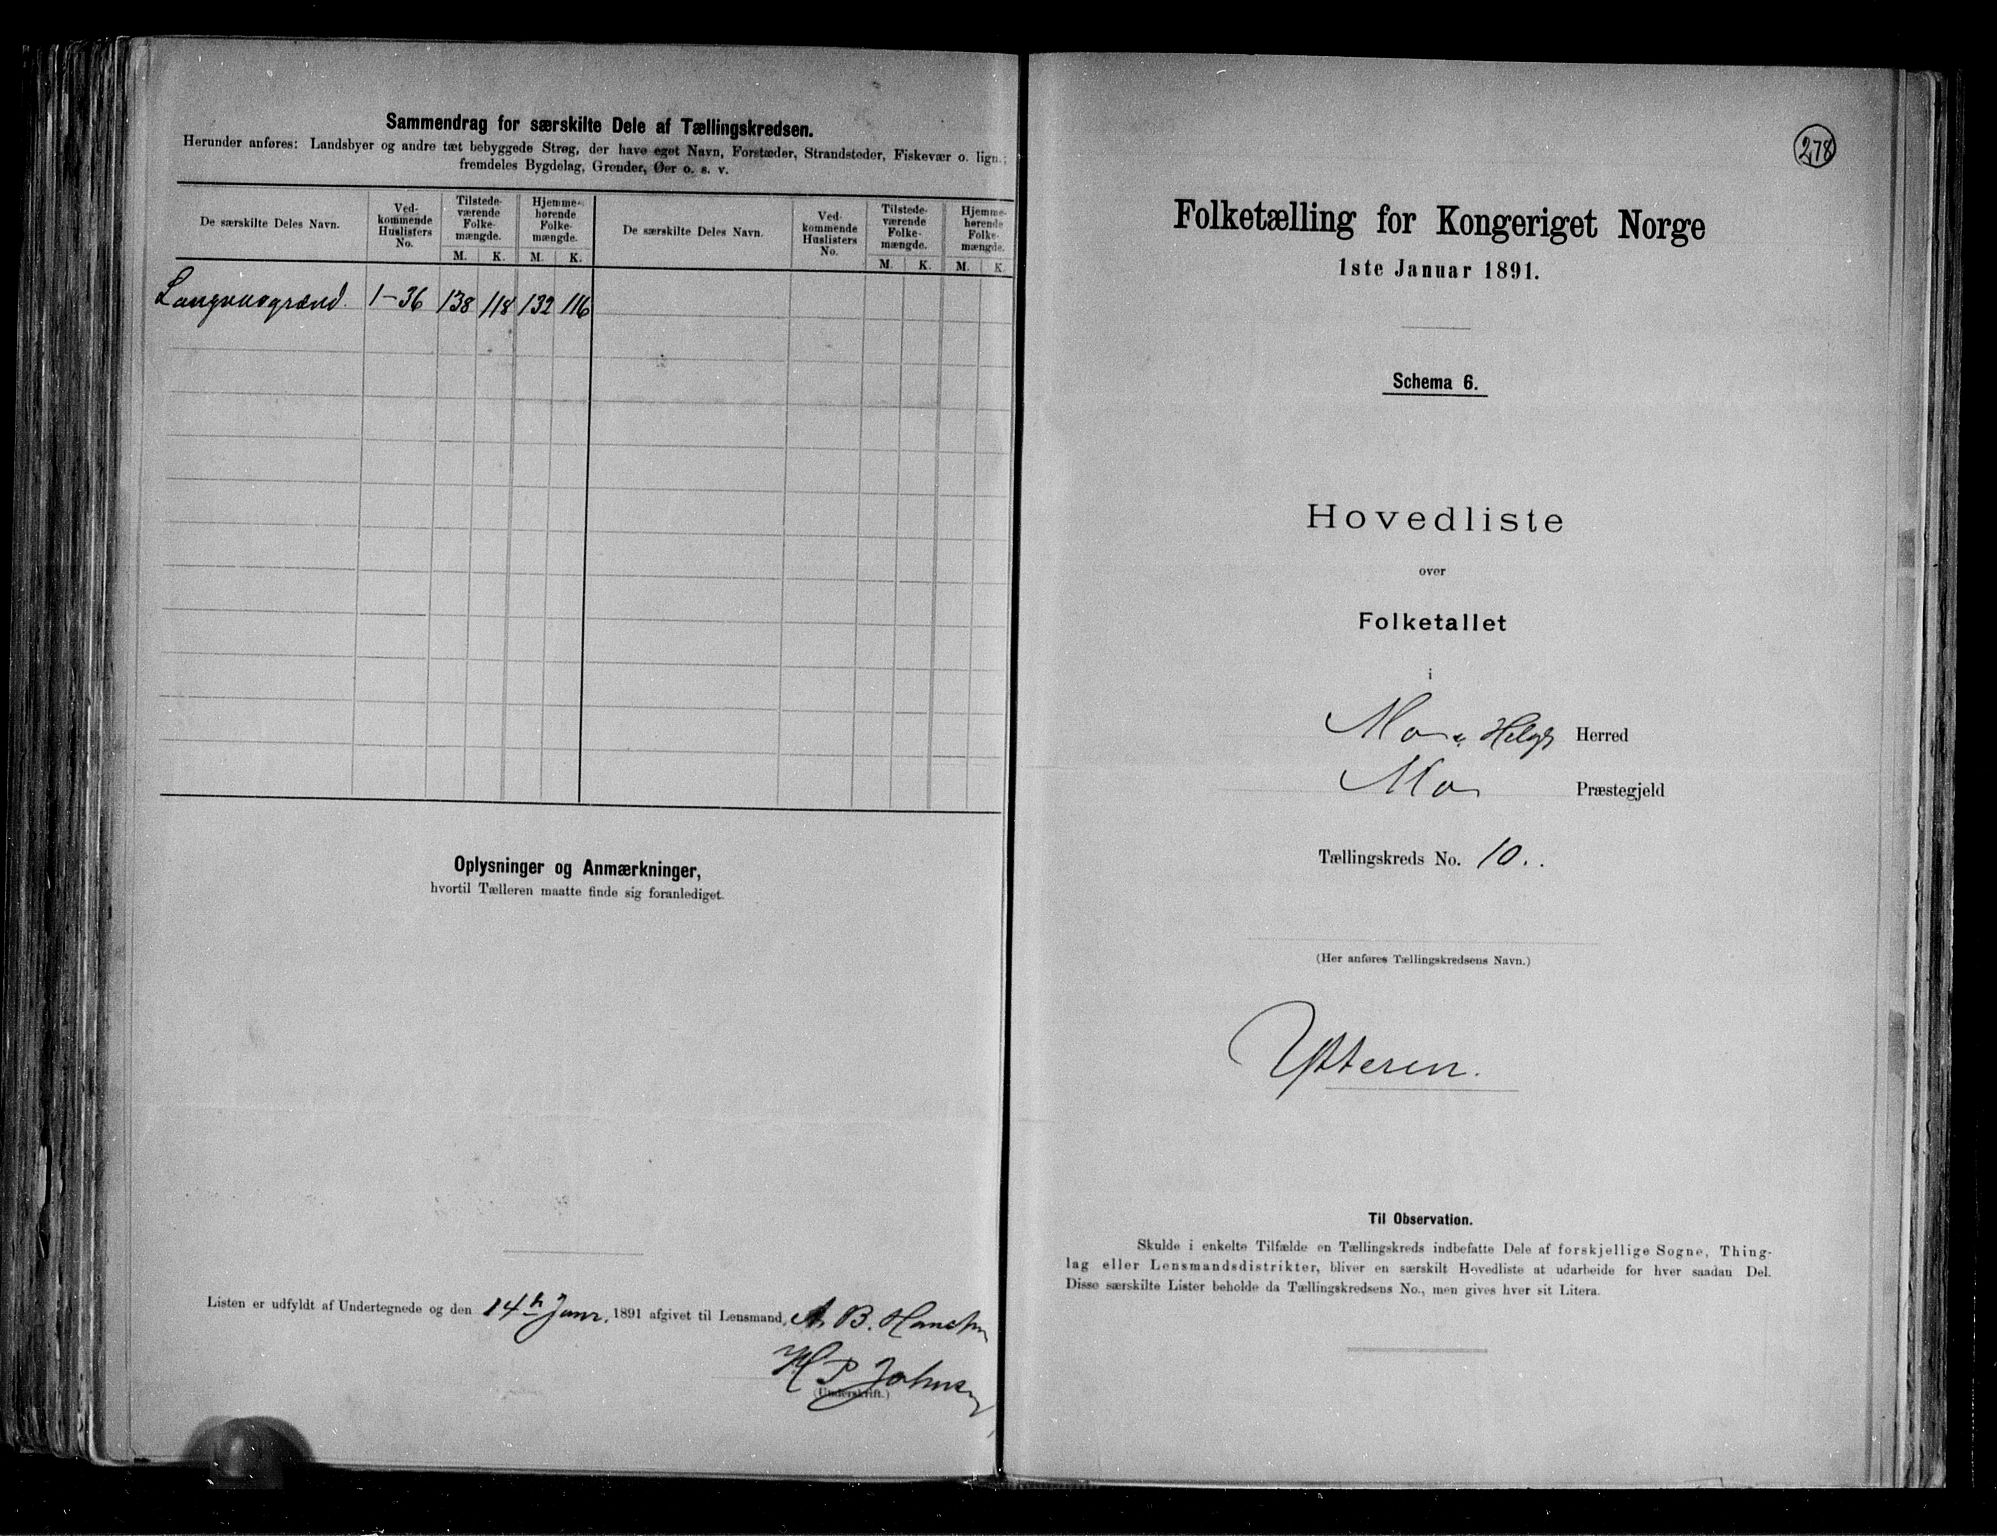 Sammendrag for særskilte Dele af Tællingskredsen.
Herunder anføres: Landsbyer og andre tæt bebyggede Strøg, der have eget Navn, Forstæder, Strandsteder, Fiskevær o. lign.;
fremdeles Bygdelag, Grender, Øer o. s. v.
De særskilte Deles Navn. Ved-kommende Huslisters No. Tilstede-værende Folke-mængde. Hjemme-hørende Folke-mængde. De særskilte Deles Navn. Ved-kommende Huslisters No. Tilstede-værende Folke-mængde. Hjemme-hørende Folke-mængde.
M. K. M. K. M. K. M. K.
1-36 138 118 132 116
Oplysninger og Anmærkninger,
hvortil Tælleren maatte finde sig foranlediget.
Listen er udfyldt af Undertegnede og den 14th Janr. 1891 afgivet til Lensmand, A. B.
H P Johnsen
(Underskrift.)
278
Folketælling for Kongeriget Norge
1ste Januar 1891.
Schema 6.
Hovedliste
over
Folketallet
i
Mo i Helgl Herred
Mo Præstegjeld
Tællingskreds No. 10.
(Her anføres Tællingskredsens Navn.)
Ytteren.
Til Observation.
Skulde i enkelte Tilfælde en Tællingskreds indbefatte Dele af forskjellige Sogne, Thing-
lag eller Lensmandsdistrikter, bliver en særskilt Hovedliste at udarbeide for hver saadan Del.
Disse særskilte Lister beholde da Tællingskredsens No., men gives hver sit Litera.